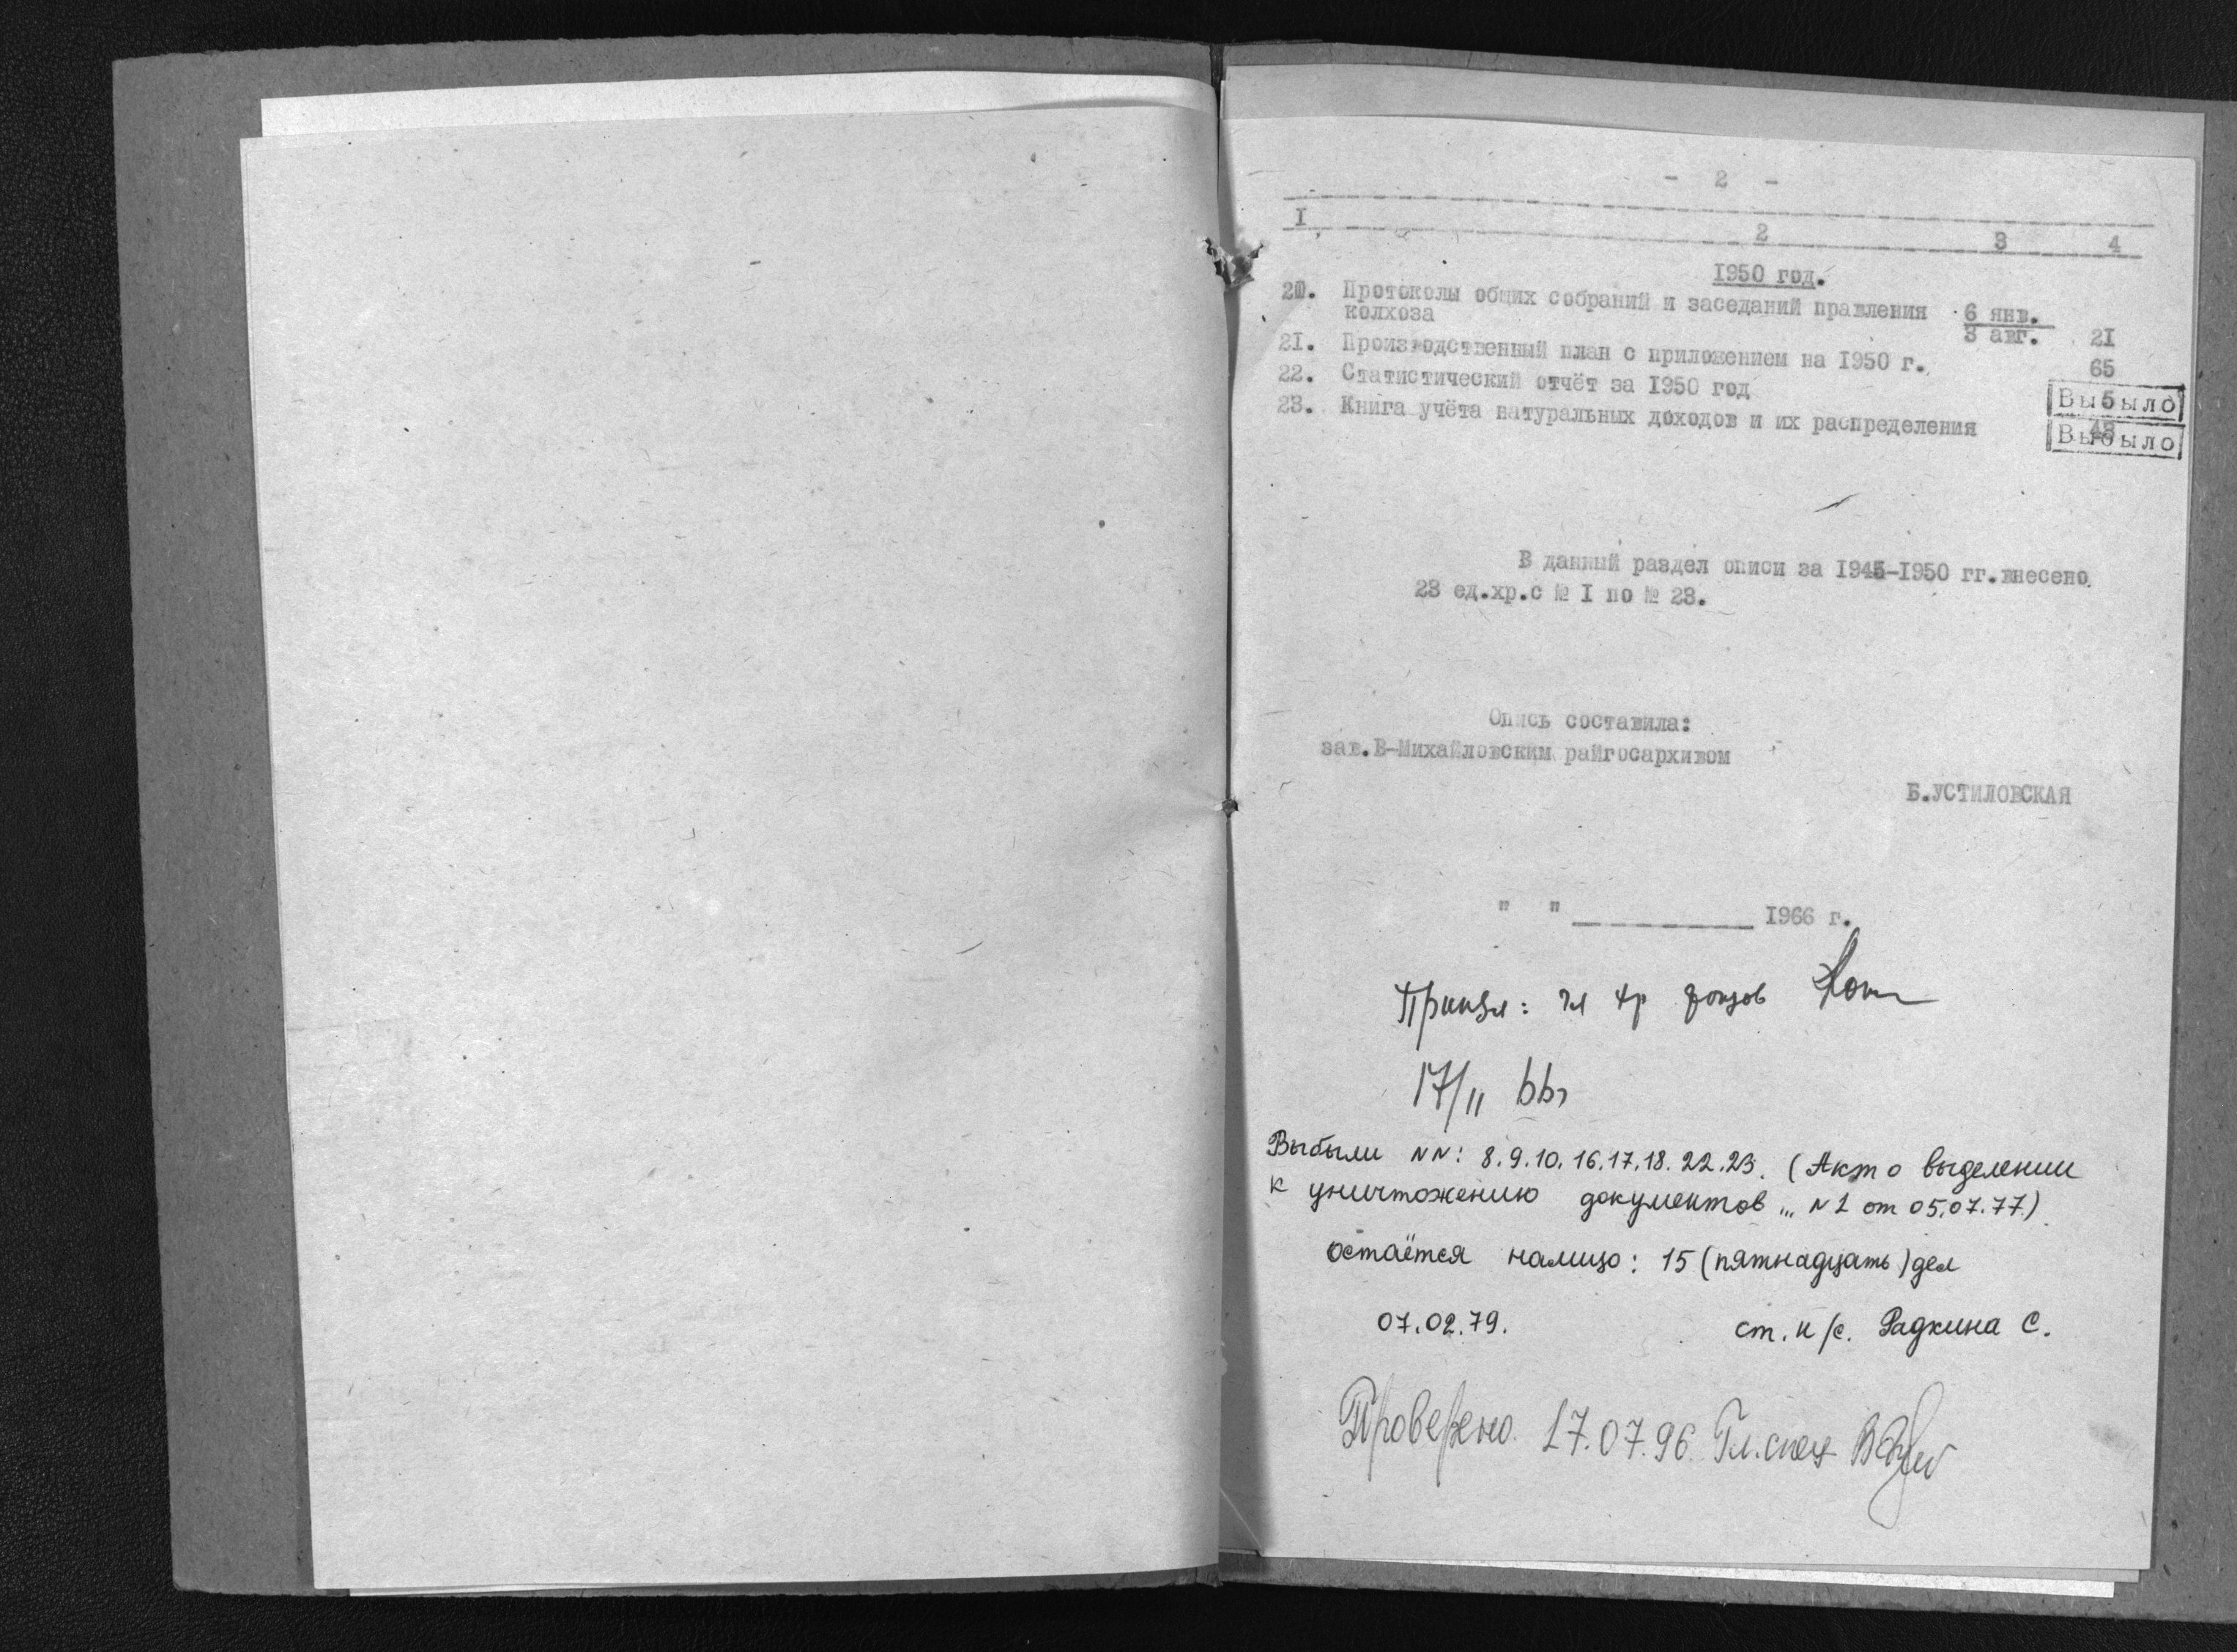 - 2 -
I 2 3 4
1950 год.
20. Протоколы общих собраний и заседаний правления 6 янв.
колхоза 3 авг. 21
21. Производственный план с приложением на 1950 г. 65
22. Статистический отчёт за 1950 год 5 Выбыло
23. Книга учёта натуральных доходов и их распределения Выбыло
В данный раздел описи за 1945-1950 гг. внесено
23 ед.хр.с № I по № 23.
Опись составила:
зав.В-Михайловским райгосархивом
Б.УСТИЛОВСКАЯ
" " 1966 г.
фондов
17/II 66г
Выбыли NN: 8.9.10.16.17.18.22.23. (Акт о выделении
к уничтожению документов ... N1 от 05.07.77.)
остаётся налицо: 15 (пятнадцать) дел
07.02.79. ст. н/с. Радкина С.
Проверено. 17.07.96. Гл.спец